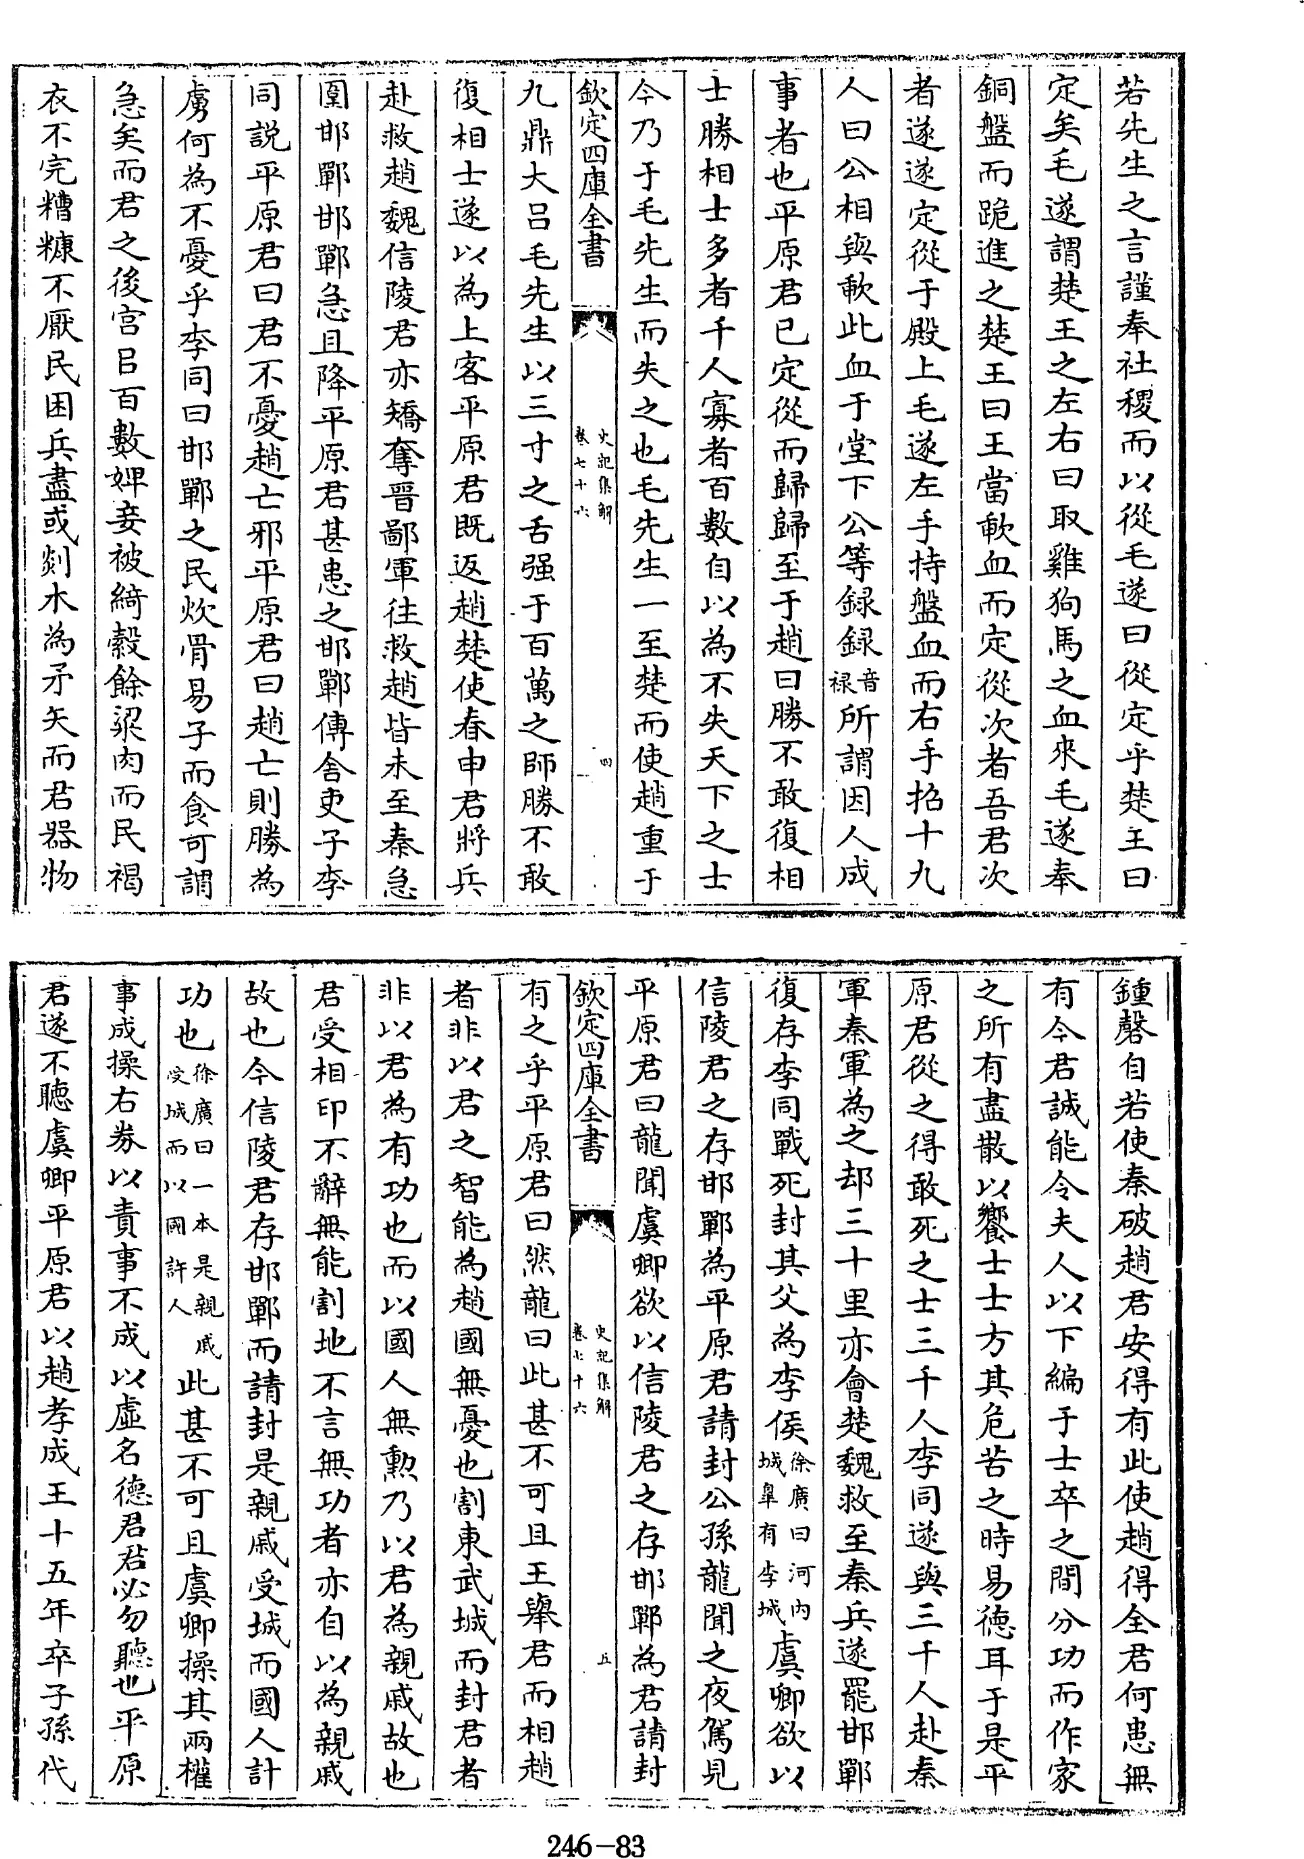 若先生之言謹奉社稷而以從毛遂曰從定乎楚王曰
定矣毛遂謂楚王之左右曰取雞狗馬之血來毛遂奉
銅盤而跪進之楚王曰王當歃血而定從次者吾君次
者遂遂定從于殿上毛遂左手持盤血而右手招十九
人曰公相與歃此血于堂下公等録録音禄所謂因人成
事者也平原君已定從而歸歸至于趙曰勝不敢復相
士勝相士多者千人寡者百數自以為不失天下之士
今乃于毛先生而失之也毛先生一至楚而使趙重于
欽定四庫全書
史記集解
卷七十六
四
九鼎大呂毛先生以三寸之舌强于百萬之師勝不敢
復相士遂以為上客平原君既返趙楚使春申君將兵
赴救趙魏信陵君亦矯奪晋鄙軍往救趙皆未至秦急
圍邯鄲邯鄲急且降平原君甚患之邯鄲傳舍吏子李
同説平原君曰君不憂趙亡邪平原君曰趙亡則勝為
虜何為不憂乎李同曰邯鄲之民炊骨易子而食可謂
急矣而君之後宫㠯百數婢妾被綺縠餘粱肉而民褐
衣不完糟糠不厭民困兵盡或剡木為矛矢而君器物
鍾磬自若使秦破趙君安得有此使趙得全君何患無
有今君誠能令夫人以下編于士卒之間分功而作家
之所有盡散以饗士士方其危苦之時易徳耳于是平
原君從之得敢死之士三千人李同遂與三千人赴秦
軍秦軍為之却三十里亦會楚魏救至秦兵遂罷邯鄲
復存李同戰死封其父為李侯徐廣曰河内城臯有李城虞卿欲以
信陵君之存邯鄲為平原君請封公孫龍聞之夜駕見
平原君曰龍聞虞卿欲以信陵君之存邯鄲為君請封
欽定四庫全書
史記集解
卷七十六
五
有之乎平原君曰然龍曰此甚不可且王舉君而相趙
者非以君之智能為趙國無憂也割東武城而封君者
非以君為有功也而以國人無勲乃以君為親戚故也
君受相印不辭無能割地不言無功者亦自以為親戚
故也今信陵君存邯鄲而請封是親戚受城而國人計
功也徐廣曰一本是親戚受城而以國許人此甚不可且虞卿操其兩權
事成操右劵以責事不成以虛名徳君君必勿聽也平原
君遂不聽虞卿平原君以趙孝成王十五年卒子孫代
246-83